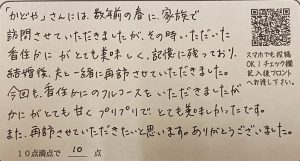 「かどや」さんには、数年前の春に、家族で
訪問させていただきましたが、その時、いただいた
香住かに がとても美味しく、記憶に残っており、
結婚後、夫と一緒に再訪させていただきました。
今回も、香住かにのフルコースをいただきましたが
かにがとても甘く プリプリで とても美味しかったです。
また、再訪させていただいたいと思います。ありがとうございました。
10点満点で 10 点
スマホでも投稿
OK!チェック欄
記入後フロント
へお渡し下さい。